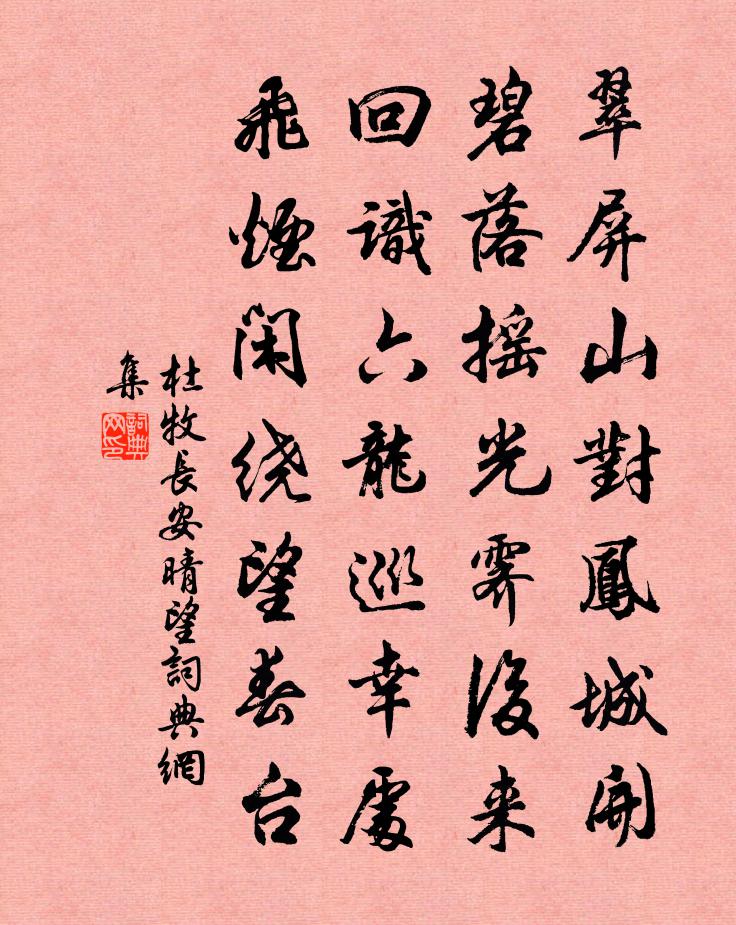 翠屏山對鳳城開
碧落摇光霽後来
回識六龍巡幸處
飛煙閑绕望春台
杜牧長安晴望詞典網
集
詞典网印